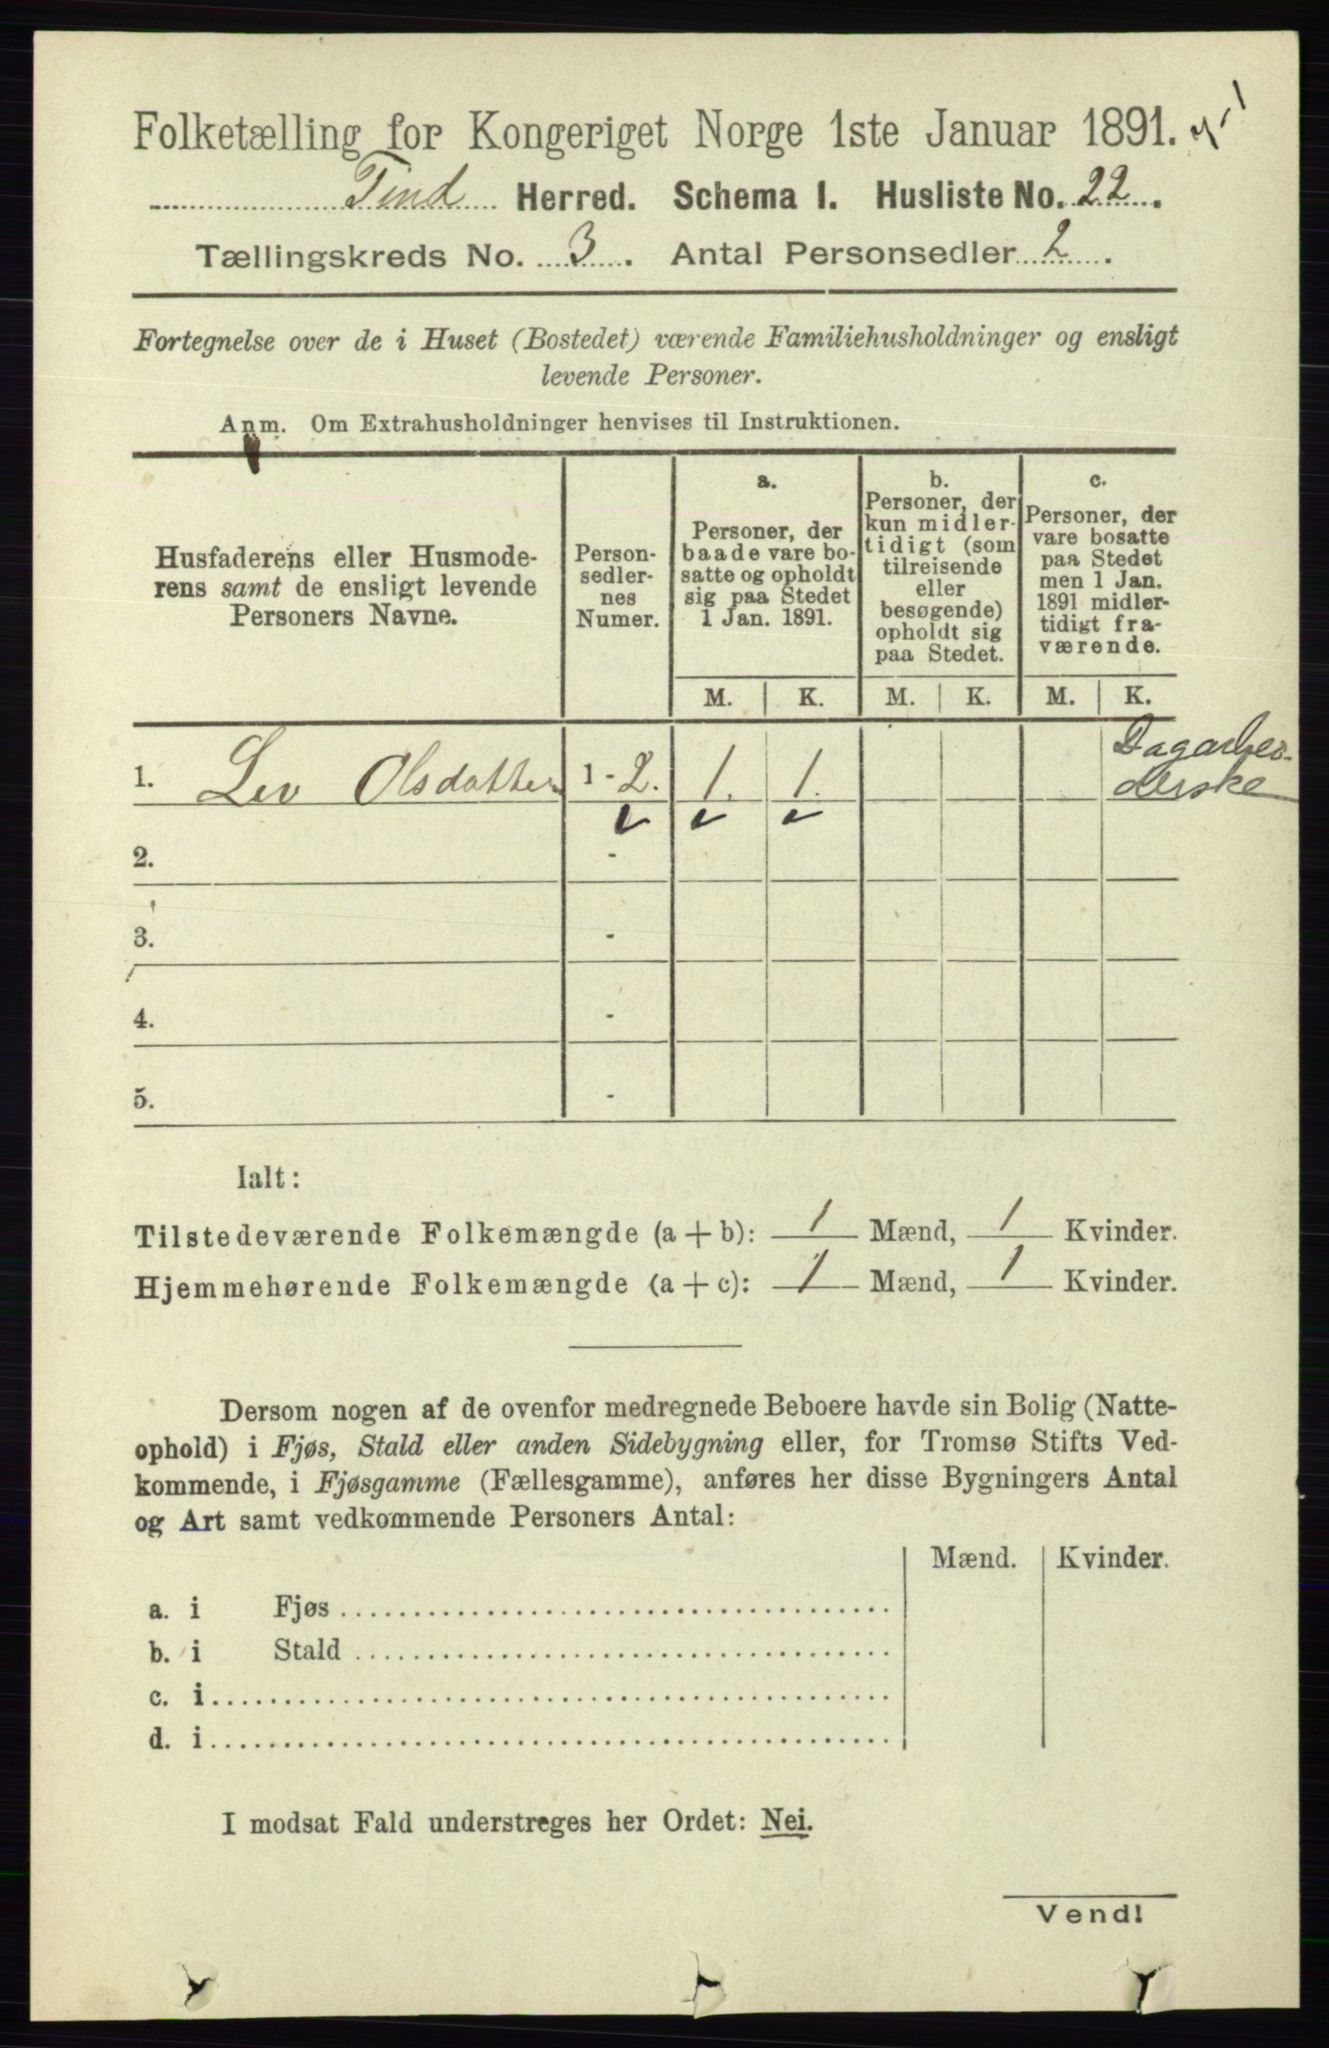 Folketælling for Kongeriget Norge 1ste Januar 1891.
Tind Herred. Schema I. Husliste No. 22.
Tællingskreds No. 3. Antal Personsedler 2.
Fortegnelse over de i Huset (Bostedet) værende Familiehusholdninger og ensligt
levende Personer.
Anm. Om Extrahusholdninger henvises til Instruktionen.
Husfaderens eller Husmode-
rens samt de ensligt levende
Personers Navne.
Person-
sedler-
nes
Numer.
a.
Personer, der
baade vare bo-
satte og opholdt
sig paa Stedet
1 Jan. 1891.
b.
Personer, der
kun midler-
tidigt (som
tilreisende
eller
besøgende)
opholdt sig
paa Stedet.
c.
Personer, der
vare bosatte
paa Stedet
men 1 Jan.
1891 midler-
tidigt fra-
værende.
M. K. M. K. M. K.
1. Liv Olsdatter 1-2. 1. 1. Dagarbei-
derske
2. -
3. -
4. -
5. -
Ialt:
Tilstedeværende Folkemængde (a+b): 1 Mænd, 1 Kvinder.
Hjemmehørende Folkemængde (a+c): 1 Mænd, 1 Kvinder.
Dersom nogen af de ovenfor medregnede Beboere havde sin Bolig (Natte-
ophold) i Fjøs, Stald eller anden Sidebygning eller, for Tromsø Stifts Ved-
kommende, i Fjøsgamme (Fællesgamme), anføres her disse Bygningers Antal
og Art samt vedkommende Personers Antal:
Mænd. Kvinder.
a. i Fjøs
b. i Stald
c. i
d. i
I modsat Fald understreges her Ordet: Nei.
Vend!